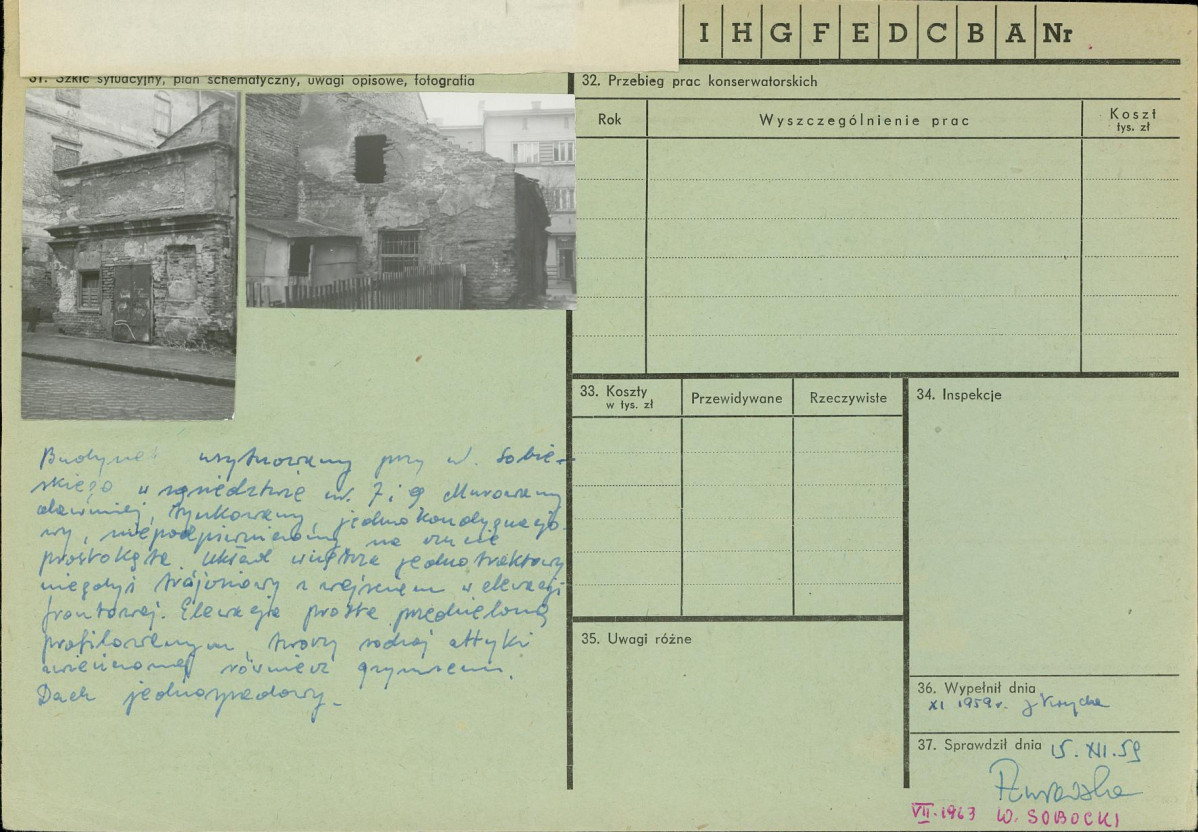 I H G F E D C B A Nr
31. Szkic sytuacyjny, plan schematyczny, uwagi opisowe, fotografia
Budynek usytuowany przy ul. Sobie-
skiego w sąsiedztwie nr. 7 i 9 Murowany
dawniej tynkowany, jednokondygnacjo-
wy, niepodpiwniczony na rzucie
prostokąta. Układ wnętrza jednotraktowy
niegdyś trójosiowy z wejściem w elewacji
frontowej. Elewacja prosta przedzielona
profilowanym tworzy rodzaj attyki
zwieńczonej również gzymsem.
Dach jednospadowy.
32. Przebieg prac konserwatorskich
Rok Wyszczególnienie prac Koszt
tys. zł
33. Koszty
w tys. zł
Przewidywane Rzeczywiste
34. Inspekcje
35. Uwagi różne
36. Wypełnił dnia
XI 1959 r.
37. Sprawdził dnia 15. XII. 59
VII. 1963 W. SOBOCKI